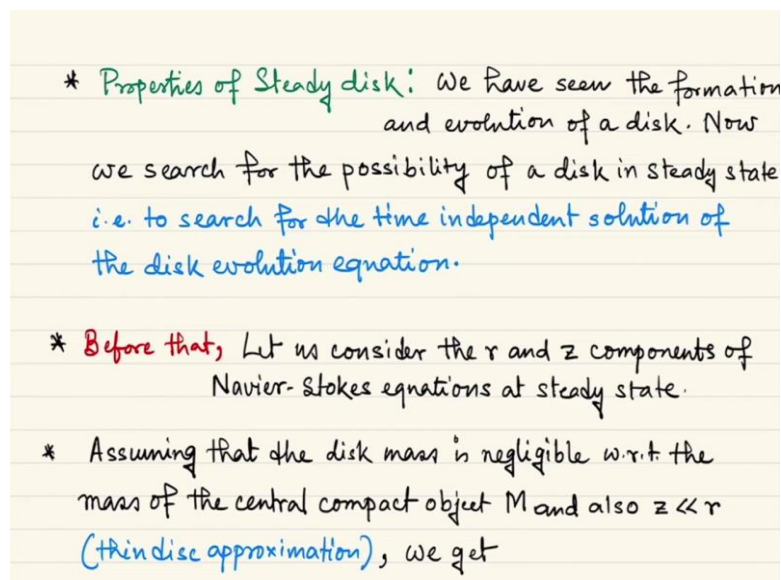 * Properties of Steady disk: We have seen the formation
and evolution of a disk. Now
we search for the possibility of a disk in steady state
i.e. to search for the time independent solution of
the disk evolution equation.
* Before that, Let us consider the r and z components of
Navier-Stokes equations at steady state.
* Assuming that the disk mass is negligible w.r.t. the
mass of the central compact object M and also z << r
(thin disc approximation), we get